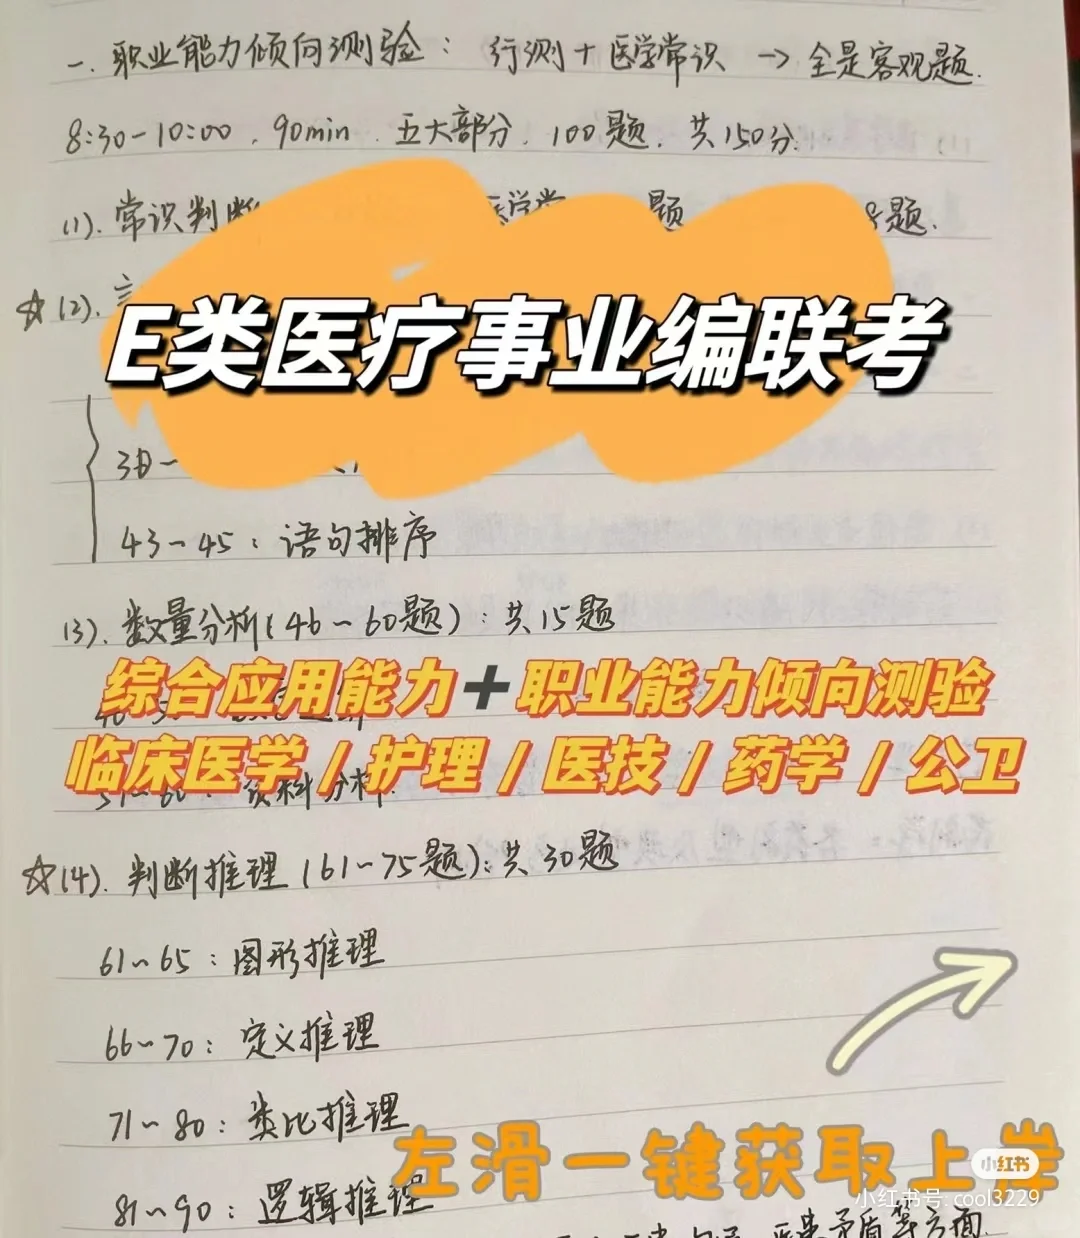 一. 职业能力倾向测验： 行测＋医学常识 → 全是客观题.
8:30－10:00 . 90min . 五大部分 . 100题. 共150分.
(1). 常识判断 医学常 题 8题.
☆(2). 言
E类医疗事业编联考
43～45：语句排序
(3). 数量分析(46～60题)：共15题
综合应用能力➕职业能力倾向测验
临床医学 / 护理 / 医技 / 药学 / 公卫
资料分析.
☆(4). 判断推理 (61～75题)：共30题
61～65：图形推理
66～70：定义推理
71～80：类比推理
左滑一键获取上岸
小红书
小红书号: cool3229
81～90：逻辑推理
矛盾等方面.